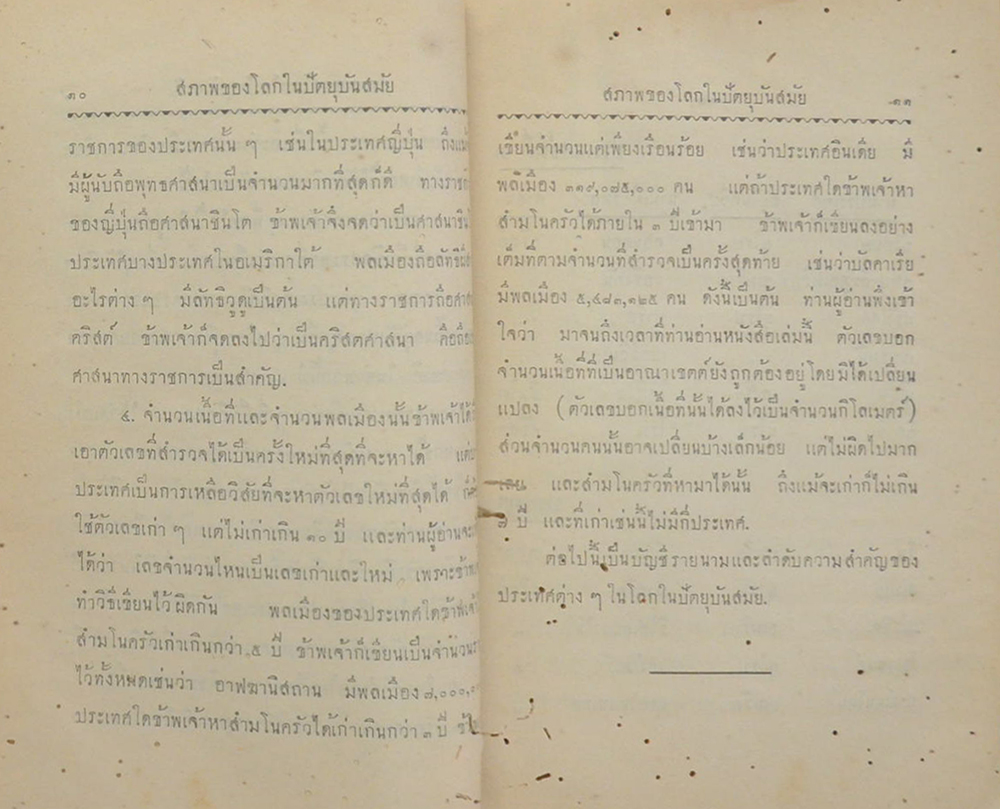 ๑๐
สภาพของโลกในปัตยุบันสมัย
ราชการของประเทศนั้น ๆ เช่นในประเทศญี่ปุ่น ถึงแม้
มีผู้นับถือพุทธศาสนาเป็นจำนวนมากที่สุดก็ดี ทางราช
ของญี่ปุ่นถือศาสนาชินโต ข้าพเจ้าจึ่งจดว่าเป็นศาสนาชิน
ประเทศบางประเทศในอเมริกาใต้ พลเมืองถือลัทธิผี
อะไรต่าง ๆ มีลัทธิวูดูเป็นต้น แต่ทางราชการถือศาส
คริสต์ ข้าพเจ้าก็จดลงไปว่าเป็นคริสตศาสนา คือถือ
ศาสนาทางราชการเป็นสำคัญ.
๔. จำนวนเนื้อที่และจำนวนพลเมืองนั้นข้าพเจ้าได้
เอาตัวเลขที่สำรวจได้เป็นครั้งใหม่ที่สุดที่จะหาได้ แต่
ประเทศเป็นการเหลือวิสัยที่จะหาตัวเลขใหม่ที่สุดได้ ก็
ใช้ตัวเลขเก่า ๆ แต่ไม่เก่าเกิน ๑๐ ปี และท่านผู้อ่านจะ
ได้ว่า เลขจำนวนไหนเป็นเลขเก่าและใหม่ เพราะข้าพ
ทำวิธีเขียนไว้ผิดกัน พลเมืองของประเทศใดข้าพเจ้า
สำมโนครัวเก่าเกินกว่า ๕ ปี ข้าพเจ้าก็เขียนเป็นจำนวน
ไว้ทั้งหมดเช่นว่า อาฟฆานิสถาน มีพลเมือง ๗,๐๐๐,๐
ประเทศใดข้าพเจ้าหาสำมโนครัวได้เก่าเกินกว่า ๓ ปี
สภาพของโลกในปัตยุบันสมัย
๑๑
เขียนจำนวนแต่เพียงเรือนร้อย เช่นว่าประเทศอินเดีย มี
พลเมือง ๓๑๙,๐๗๕,๐๐๐ คน แต่ถ้าประเทศใดข้าพเจ้าหา
สำมโนครัวได้ภายใน ๓ ปีเข้ามา ข้าพเจ้าก็เขียนลงอย่าง
เต็มที่ตามจำนวนที่สำรวจเป็นครั้งสุดท้าย เช่นว่าบัลคาเรีย
มีพลเมือง ๕,๔๘๓,๑๒๕ คน ดังนี้เป็นต้น ท่านผู้อ่านพึงเข้า
ใจว่า มาจนถึงเวลาที่ท่านอ่านหนังสือเล่มนี้ ตัวเลขบอก
จำนวนเนื้อที่ที่เป็นอาณาเขตต์ยังถูกต้องอยู่โดยมิได้เปลี่ยน
แปลง (ตัวเลขบอกเนื้อที่นั้นได้ลงไว้เป็นจำนวนกิโลเมตร์)
ส่วนจำนวนคนนั้นอาจเปลี่ยนบ้างเล็กน้อย แต่ไม่ผิดไปมาก
เลย และสำมโนครัวที่หามาได้นั้น ถึงแม้จะเก่าก็ไม่เกิน
๗ ปี และที่เก่าเช่นนี้ไม่มีกี่ประเทศ.
ต่อไปนี้เป็นบัญชีรายนามและลำดับความสำคัญของ
ประเทศต่าง ๆ ในโลกในปัตยุบันสมัย.